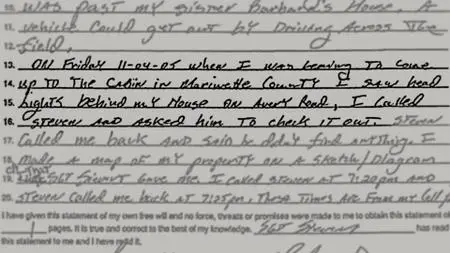 10. was past my sister Barbara's House, A
11. vehicle could get out by Driving Across The
12. field,
13. ON Friday 11-04-05 when I was leaving to come
14. up to The Cabin in Marinette County I saw head
15. lights behind my House on Avery Road, I called
16. STEVEN AND ASKED him To check iT OUT. STEVEN
17. Called me back AND SAID he didnt find anything. I
18. made A map of my property on A sketch/Diagram
19. that SGT gave me. I called STEVEN AT 7:20pm AND
20. STEVEN Called me back at 7:25pm, These Times Are From my Cell p
I have given this statement of my own free will and no force, threats or promises were made to me to obtain this statement of
1 pages. It is true and correct to the best of my knowledge. SGT has read
this statement to me and I have read it.